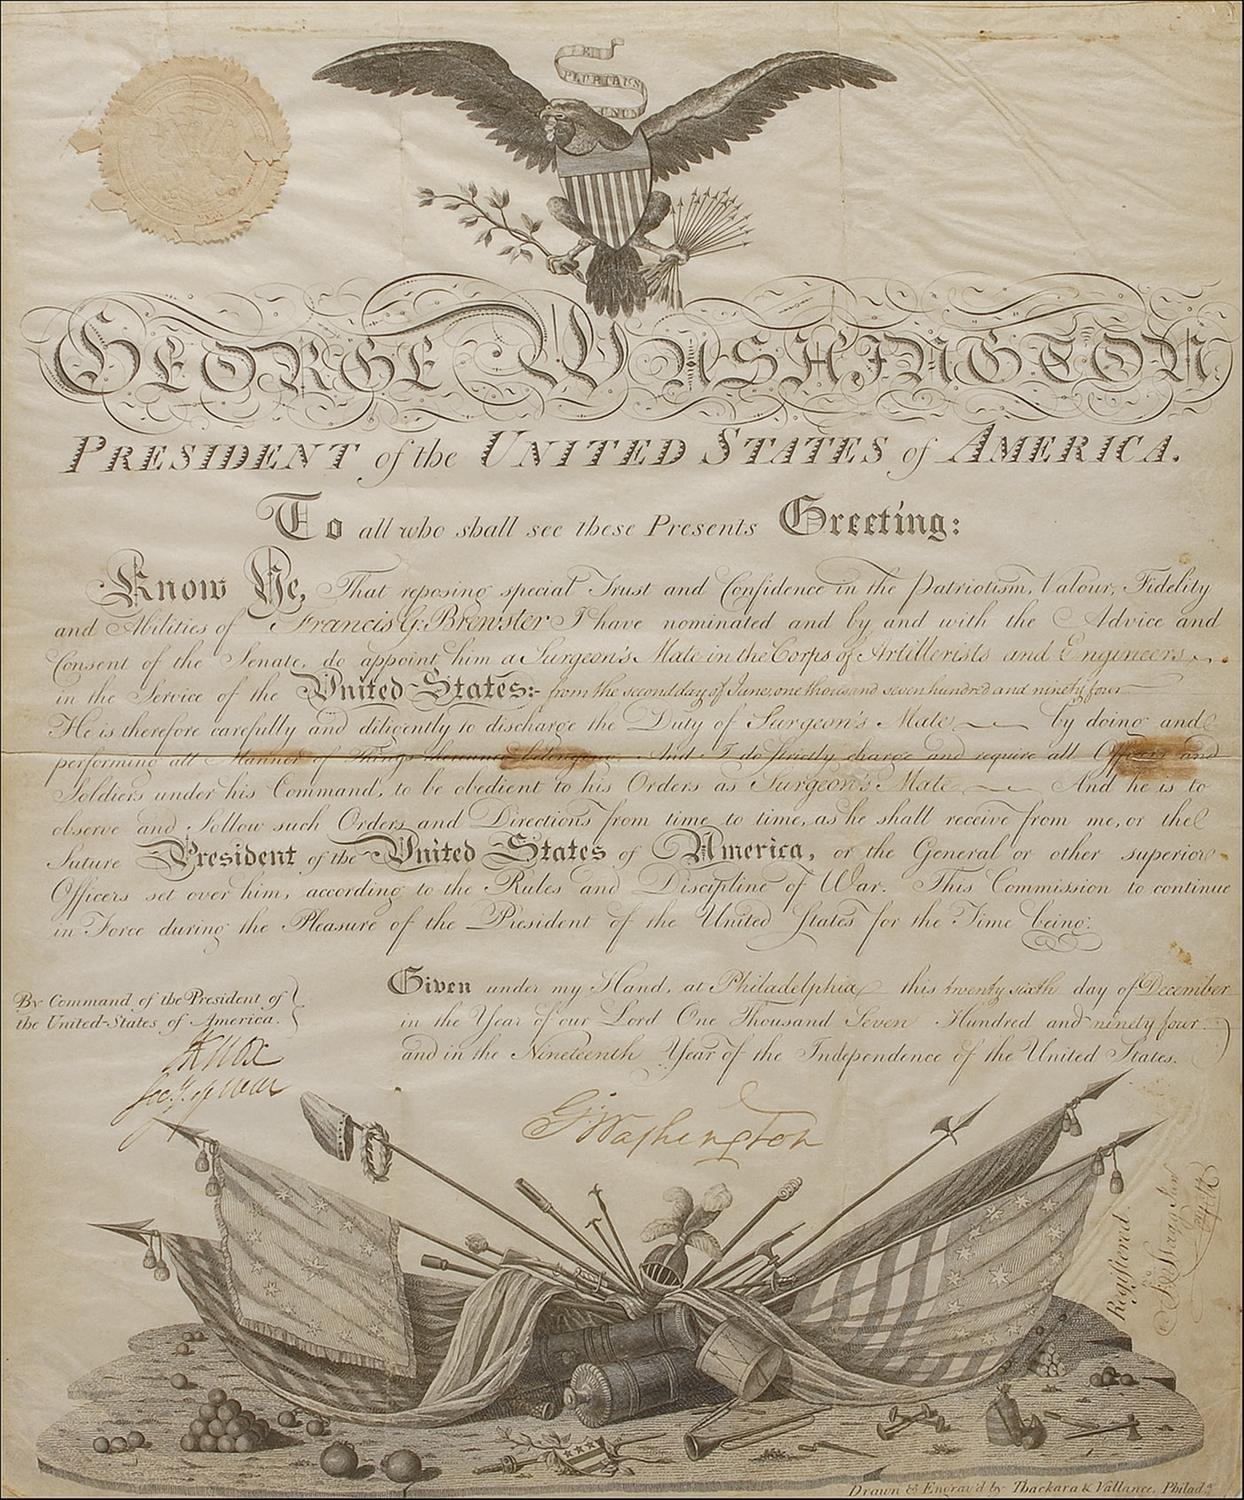 E
PLURIBUS
UNUM
GEORGE WASHINGTON
PRESIDENT of the UNITED STATES of AMERICA.
To all who shall see these Presents Greeting:
Know Ye, That reposing special Trust and Confidence in the Patriotism, Valour, Fidelity
and Abilities of Francis G. Brewster I have nominated and by and with the Advice and
Consent of the Senate, do appoint him a Surgeon's Mate in the Corps of Artillerists and Engineers
in the Service of the United States:- from the second day of June, one thousand seven hundred and ninety four
He is therefore carefully and diligently to discharge the Duty of Surgeon's Mate by doing and
performing all Manner of Things thereunto belonging. And I do strictly charge and require all Officers and
Soldiers under his Command, to be obedient to his Orders as Surgeon's Mate And he is to
observe and follow such Orders and Directions from time to time, as he shall receive from me, or the
future President of the United States of America, or the General or other superior
Officers set over him, according to the Rules and Discipline of War. This Commission to continue
in Force during the Pleasure of the President of the United States for the Time being.
Given under my Hand, at Philadelphia this twenty sixth day of December
in the Year of our Lord One Thousand Seven Hundred and ninety four
and in the Nineteenth Year of the Independence of the United States.
By Command of the President of
the United-States of America.
HKnox
Secy. of War
G. Washington
Registered.
Drawn & Engrav'd by Thackara & Vallance, Philad.